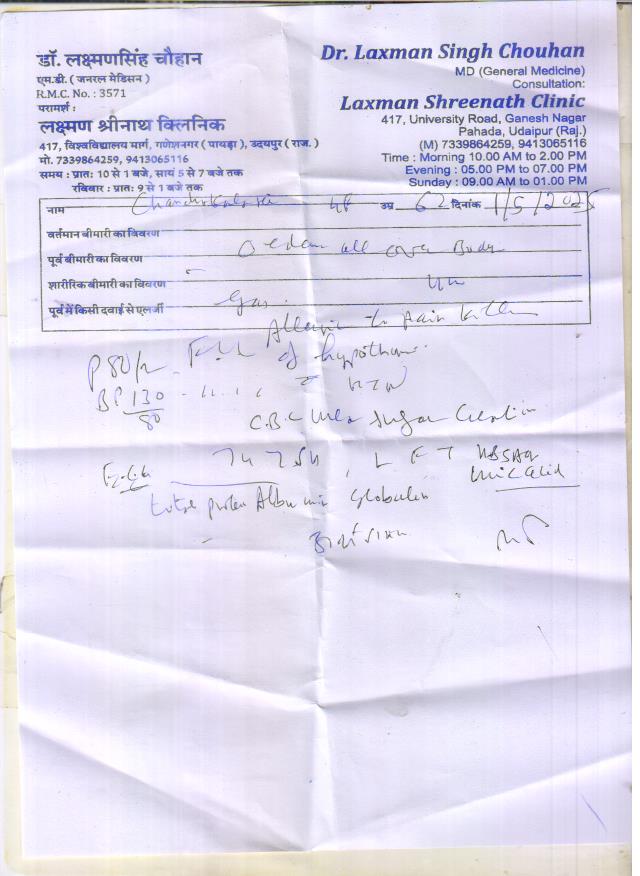 डॉ. लक्ष्मणसिंह चौहान
एम.डी. ( जनरल मेडिसन )
R.M.C. No. : 3571
परामर्श :
लक्ष्मण श्रीनाथ क्लिनिक
417, विश्वविद्यालय मार्ग, गणेशनगर ( पायड़ा ), उदयपुर ( राज. )
मो. 7339864259, 9413065116
समय : प्रात: 10 से 1 बजे, सायं 5 से 7 बजे तक
रविवार : प्रात: 9 से 1 बजे तक
Dr. Laxman Singh Chouhan
MD (General Medicine)
Consultation:
Laxman Shreenath Clinic
417, University Road, Ganesh Nagar
Pahada, Udaipur (Raj.)
(M) 7339864259, 9413065116
Time : Morning 10.00 AM to 2.00 PM
Evening : 05.00 PM to 07.00 PM
Sunday : 09.00 AM to 01.00 PM
नाम उम्र 62 दिनांक 1/5/2025
वर्तमान बीमारी का विवरण
पूर्व बीमारी का विवरण Oedema all over Body
शारीरिक बीमारी का विवरण
पूर्व में किसी दवाई से एलर्जी gas.
Allergic to pain killer
P 80/m
BP 130/80
C.B.C Urea Sugar Creatinine
T4 TSH, LFT HBSAG
E.C.G Uric Acid
total protein Albumin Globulin